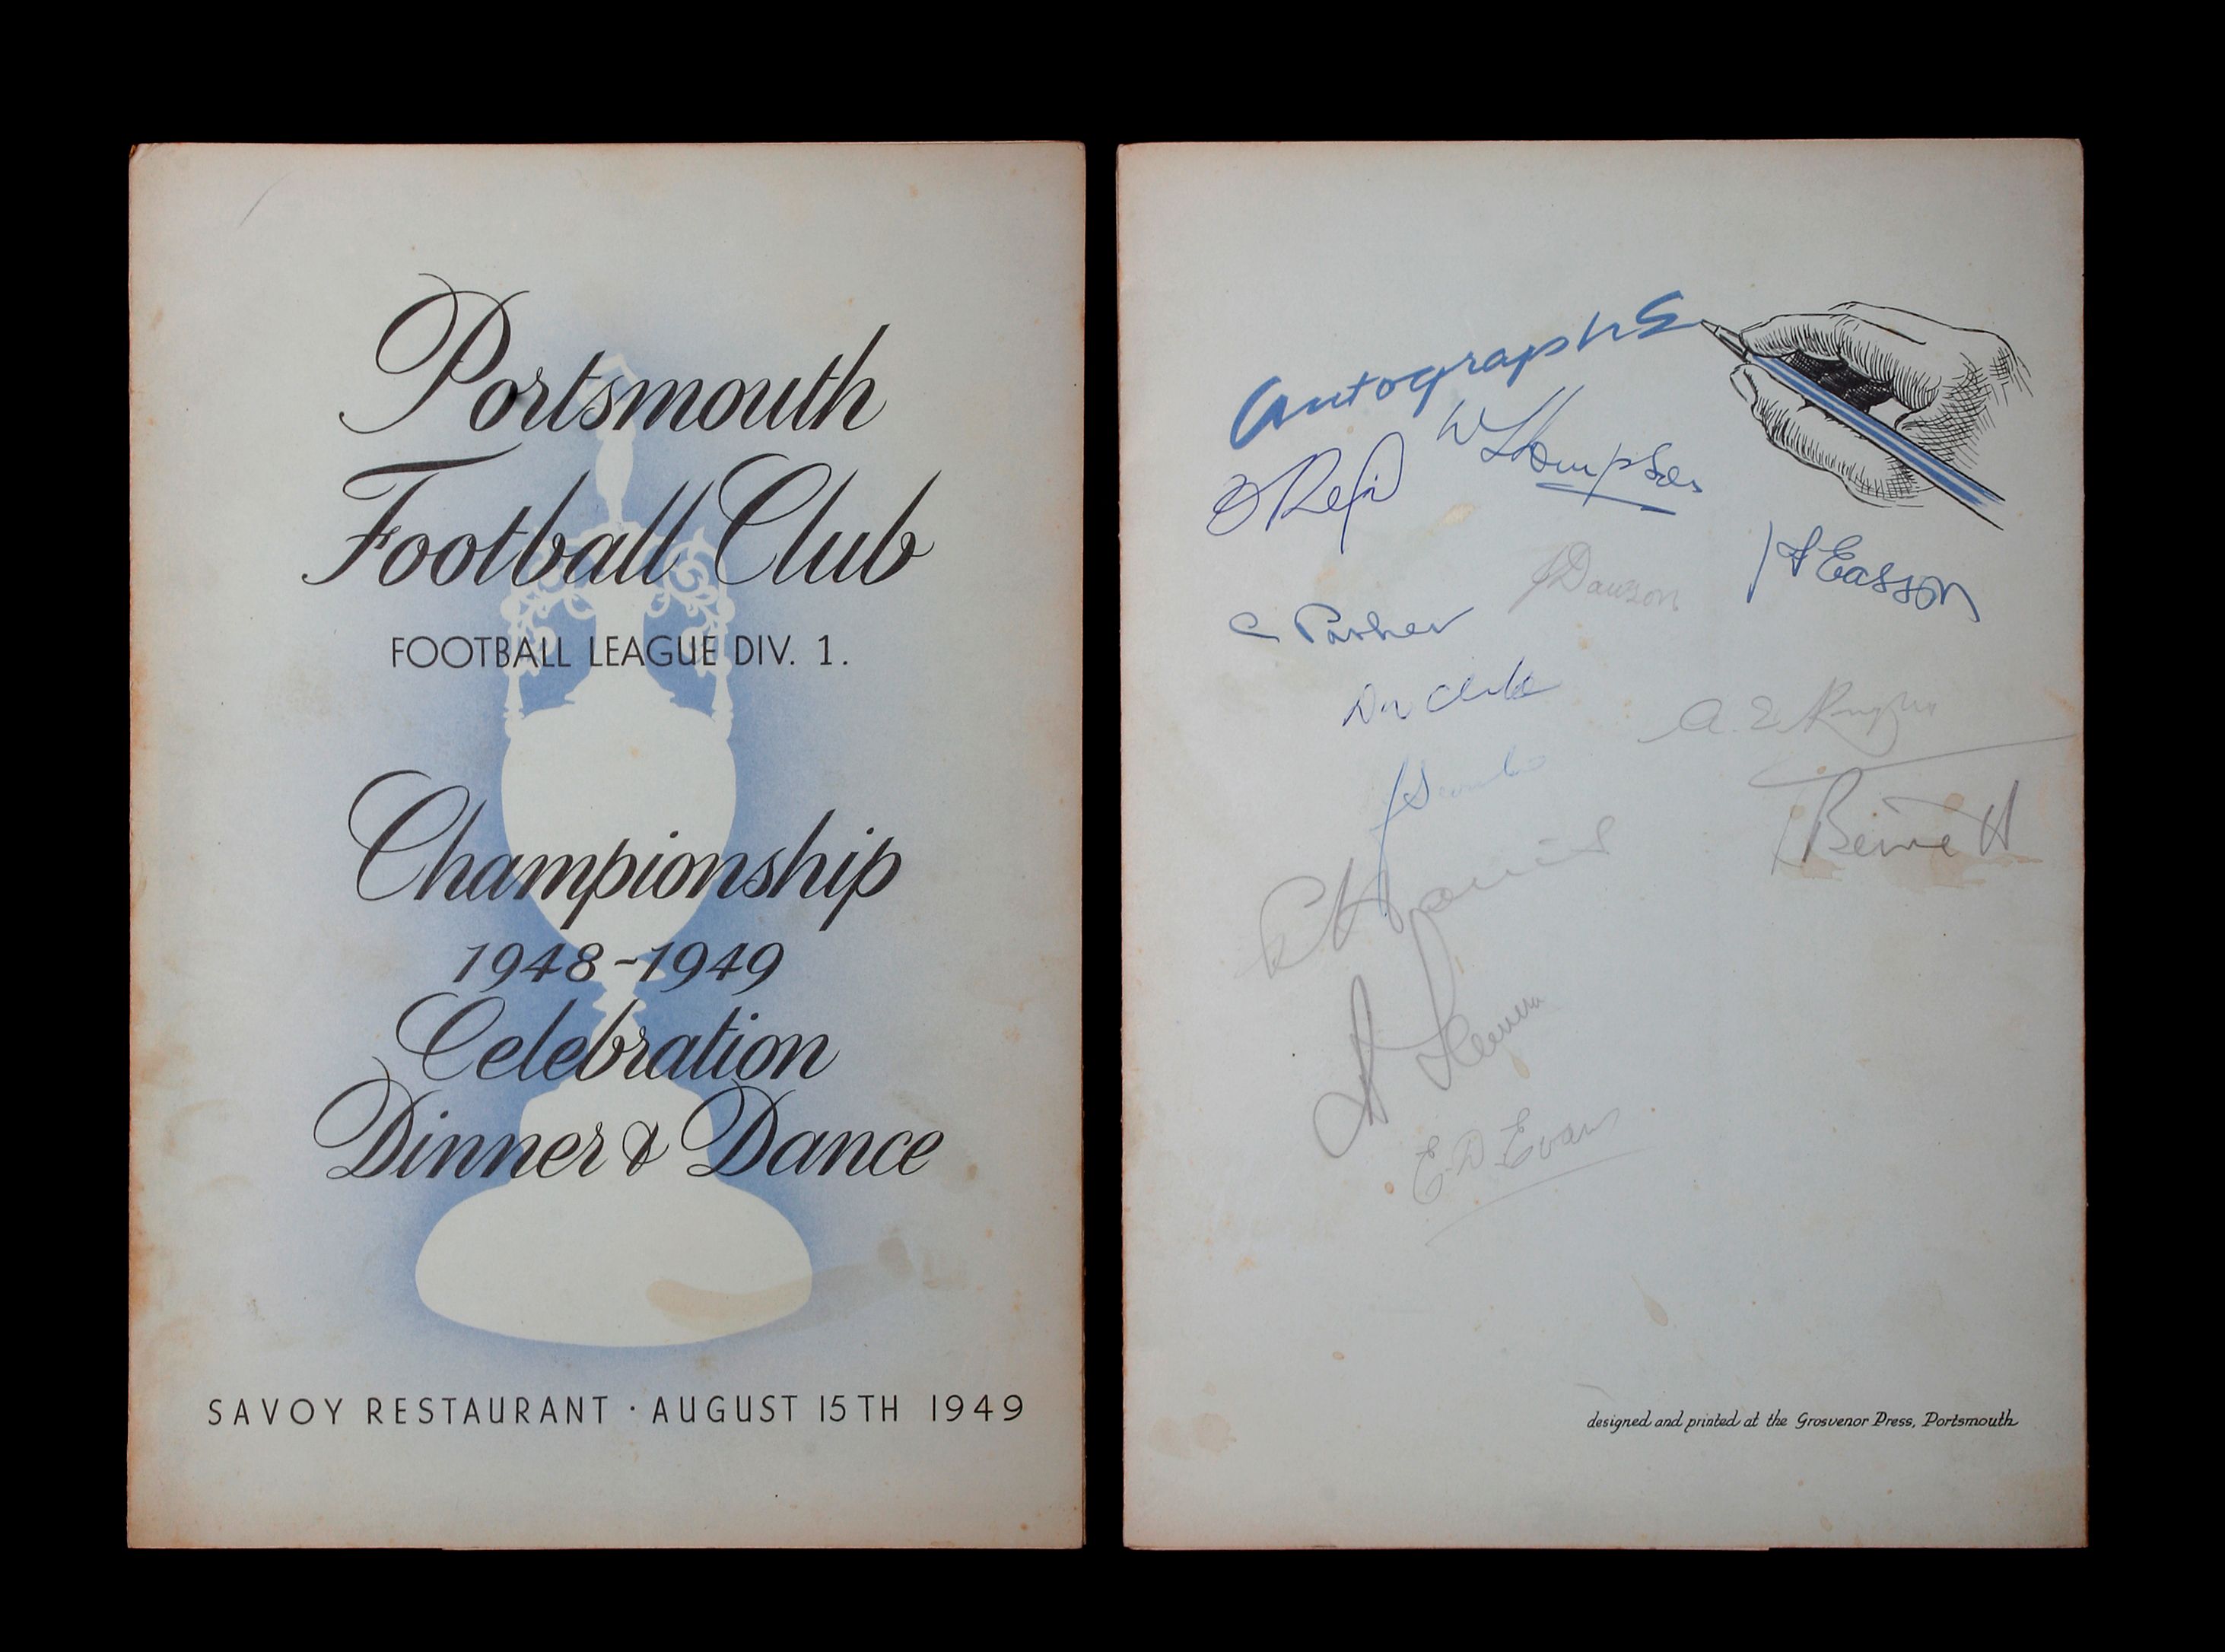 Portsmouth
Football Club
FOOTBALL LEAGUE DIV. 1.
Championship
1948-1949
Celebration
Dinner & Dance
SAVOY RESTAURANT · AUGUST 15TH 1949
Autographs
W Thompson
D Reid
J Dawson
Easson
C Parker
A. E.
Bennett
E D Evans
designed and printed at the Grosvenor Press, Portsmouth